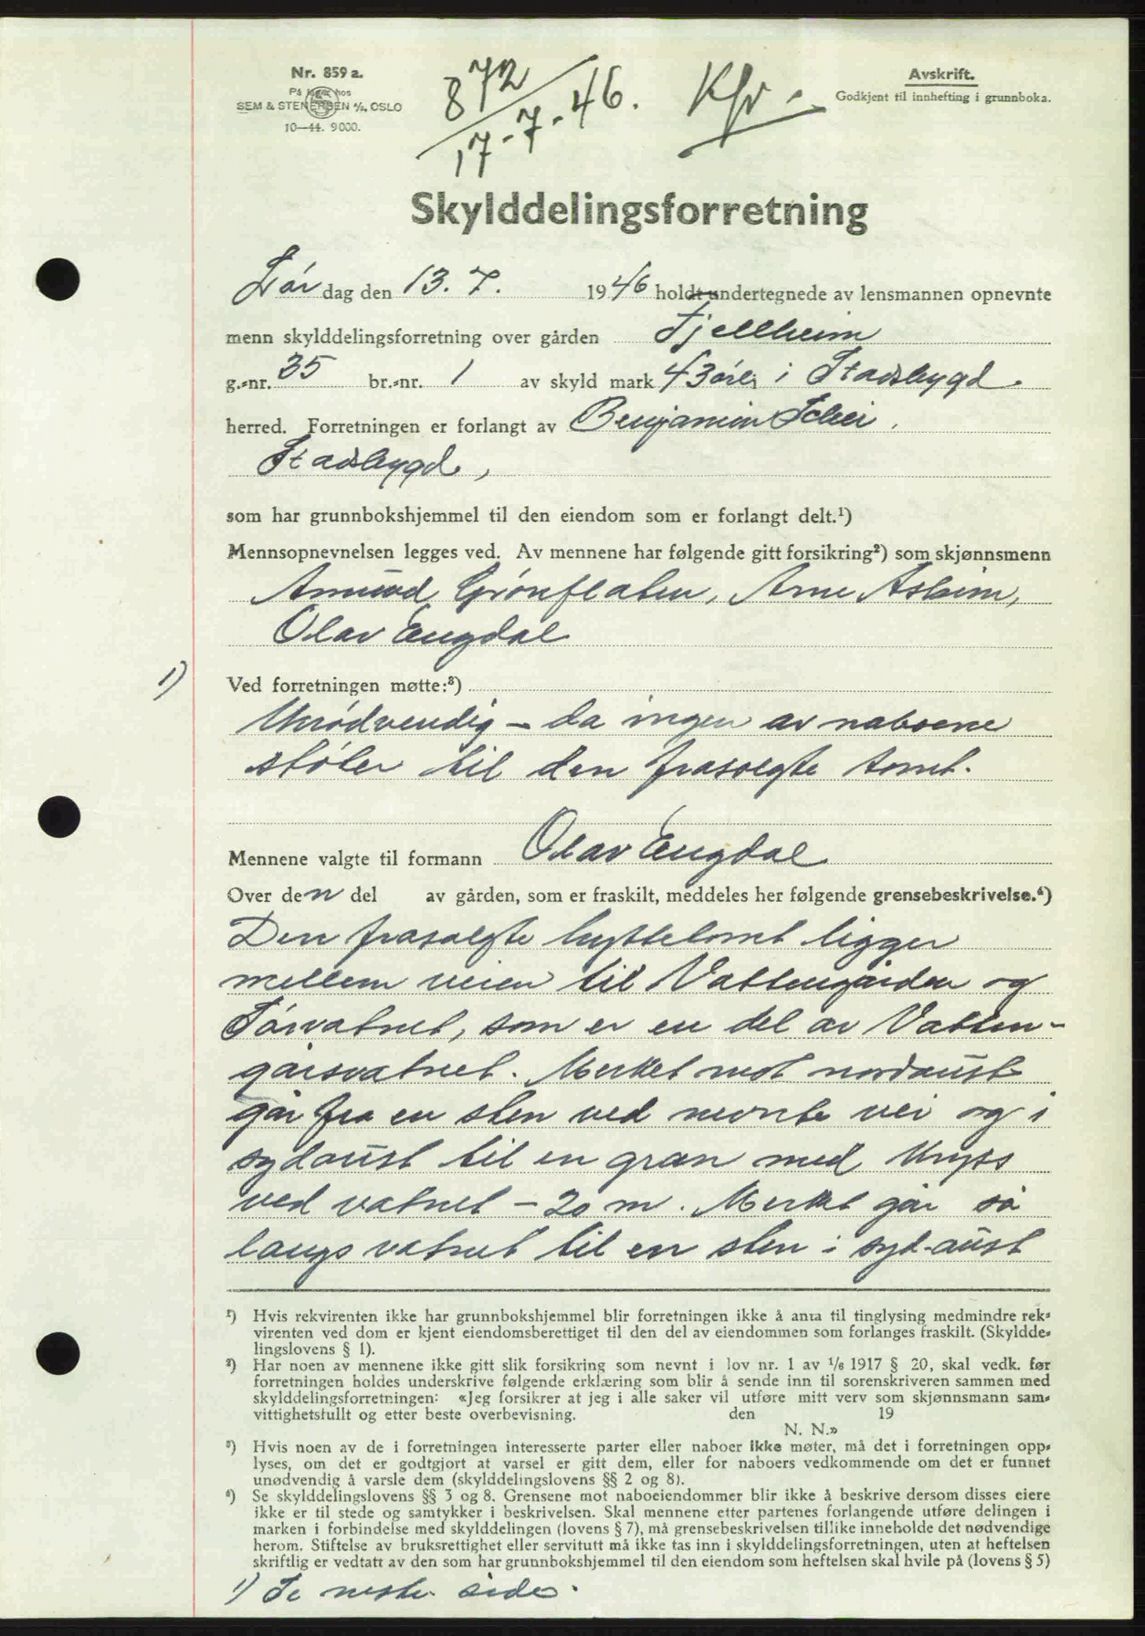 Nr. 859 a.
På lager hos
SEM & STENERSEN A/S, OSLO
10—44. 9000.
872
17-7-46.
Avskrift.
Godkjent til innhefting i grunnboka.
Skylddelingsforretning
Lør dag den 13. 7. 1946 holdt undertegnede av lensmannen opnevnte
menn skylddelingsforretning over gården Fjellheim
g.-nr. 35 br.-nr. 1 av skyld mark 43 øre, i Stadsbygd
herred. Forretningen er forlangt av Benjamin Schei,
Stadsbygd,
som har grunnbokshjemmel til den eiendom som er forlangt delt.¹)
Mennsopnevnelsen legges ved. Av mennene har følgende gitt forsikring²) som skjønnsmenn
Amund Grønflaten, Arne Asheim,
Olav Engdal
1) Ved forretningen møtte:³)
Unødvendig - da ingen av naboene
støter til den frasolgte tomt.
Mennene valgte til formann Olav Engdal
Over den del av gården, som er fraskilt, meddeles her følgende grensebeskrivelse.⁴)
Den frasolgte hyttetomt ligger
mellem veien til Vattengården og
Sørvatnet, som er en del av Vatten-
gårsvatnet. Merket mot nordaust
går fra en sten ved nevnte vei og i
sydaust til en gran med kryss
ved vatnet - 20 m. Merket går så
langs vatnet til en sten i syd-aust
¹) Hvis rekvirenten ikke har grunnbokshjemmel blir forretningen ikke å anta til tinglysing medmindre rek-
virenten ved dom er kjent eiendomsberettiget til den del av eiendommen som forlanges fraskilt. (Skyldde-
lingslovens § 1).
²) Har noen av mennene ikke gitt slik forsikring som nevnt i lov nr. 1 av ¹/₆ 1917 § 20, skal vedk. før
forretningen holdes underskrive følgende erklæring som blir å sende inn til sorenskriveren sammen med
skylddelingsforretningen: «Jeg forsikrer at jeg i alle saker vil utføre mitt verv som skjønnsmann sam-
vittighetsfullt og etter beste overbevisning. den 19
N. N.»
³) Hvis noen av de i forretningen interesserte parter eller naboer ikke møter, må det i forretningen opp-
lyses, om det er godtgjort at varsel er gitt dem, eller for naboers vedkommende om det er funnet
unødvendig å varsle dem (skylddelingslovens §§ 2 og 8).
⁴) Se skylddelingslovens §§ 3 og 8. Grensene mot naboeiendommer blir ikke å beskrive dersom disses eiere
ikke er til stede og samtykker i beskrivelsen. Skal mennene etter partenes forlangende utføre delingen i
marken i forbindelse med skylddelingen (lovens § 7), må grensebeskrivelsen tillike inneholde det nødvendige
herom. Stiftelse av bruksrettighet eller servitutt må ikke tas inn i skylddelingsforretningen, uten at heftelsen
skriftlig er vedtatt av den som har grunnbokshjemmel til den eiendom som heftelsen skal hvile på (lovens § 5)
1) Se neste side.